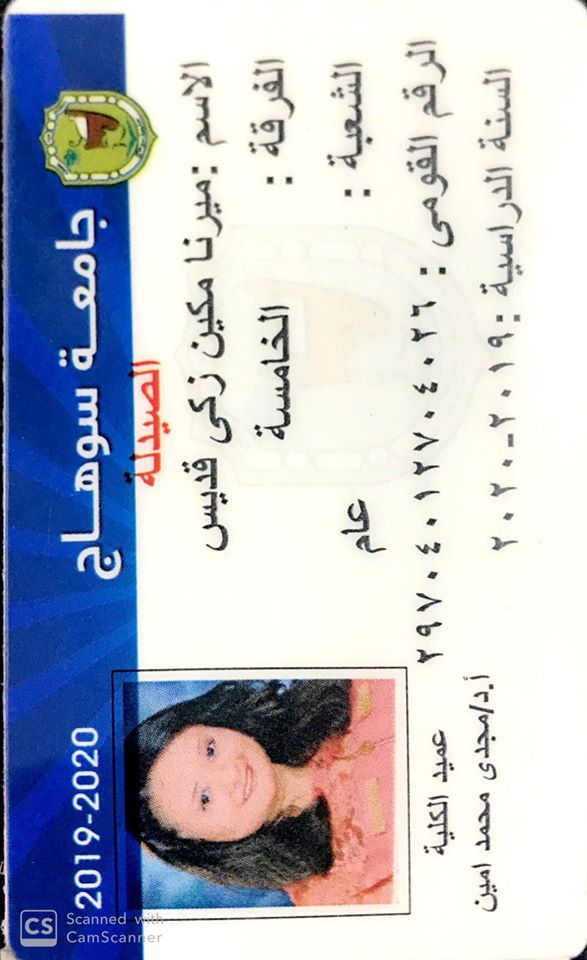 جامعة سوهاج
الصيدلة
الاسم : ميرنا مكين زكى قديس
الفرقة : الخامسة
الشعبة : عام
الرقم القومى : ٢٩٧٠٤٠١٢٧٠٤٠٢٦
السنة الدراسية : ٢٠١٩-٢٠٢٠
2019-2020
عميد الكلية
أ.د/مجدى محمد امين
CS Scanned with
CamScanner